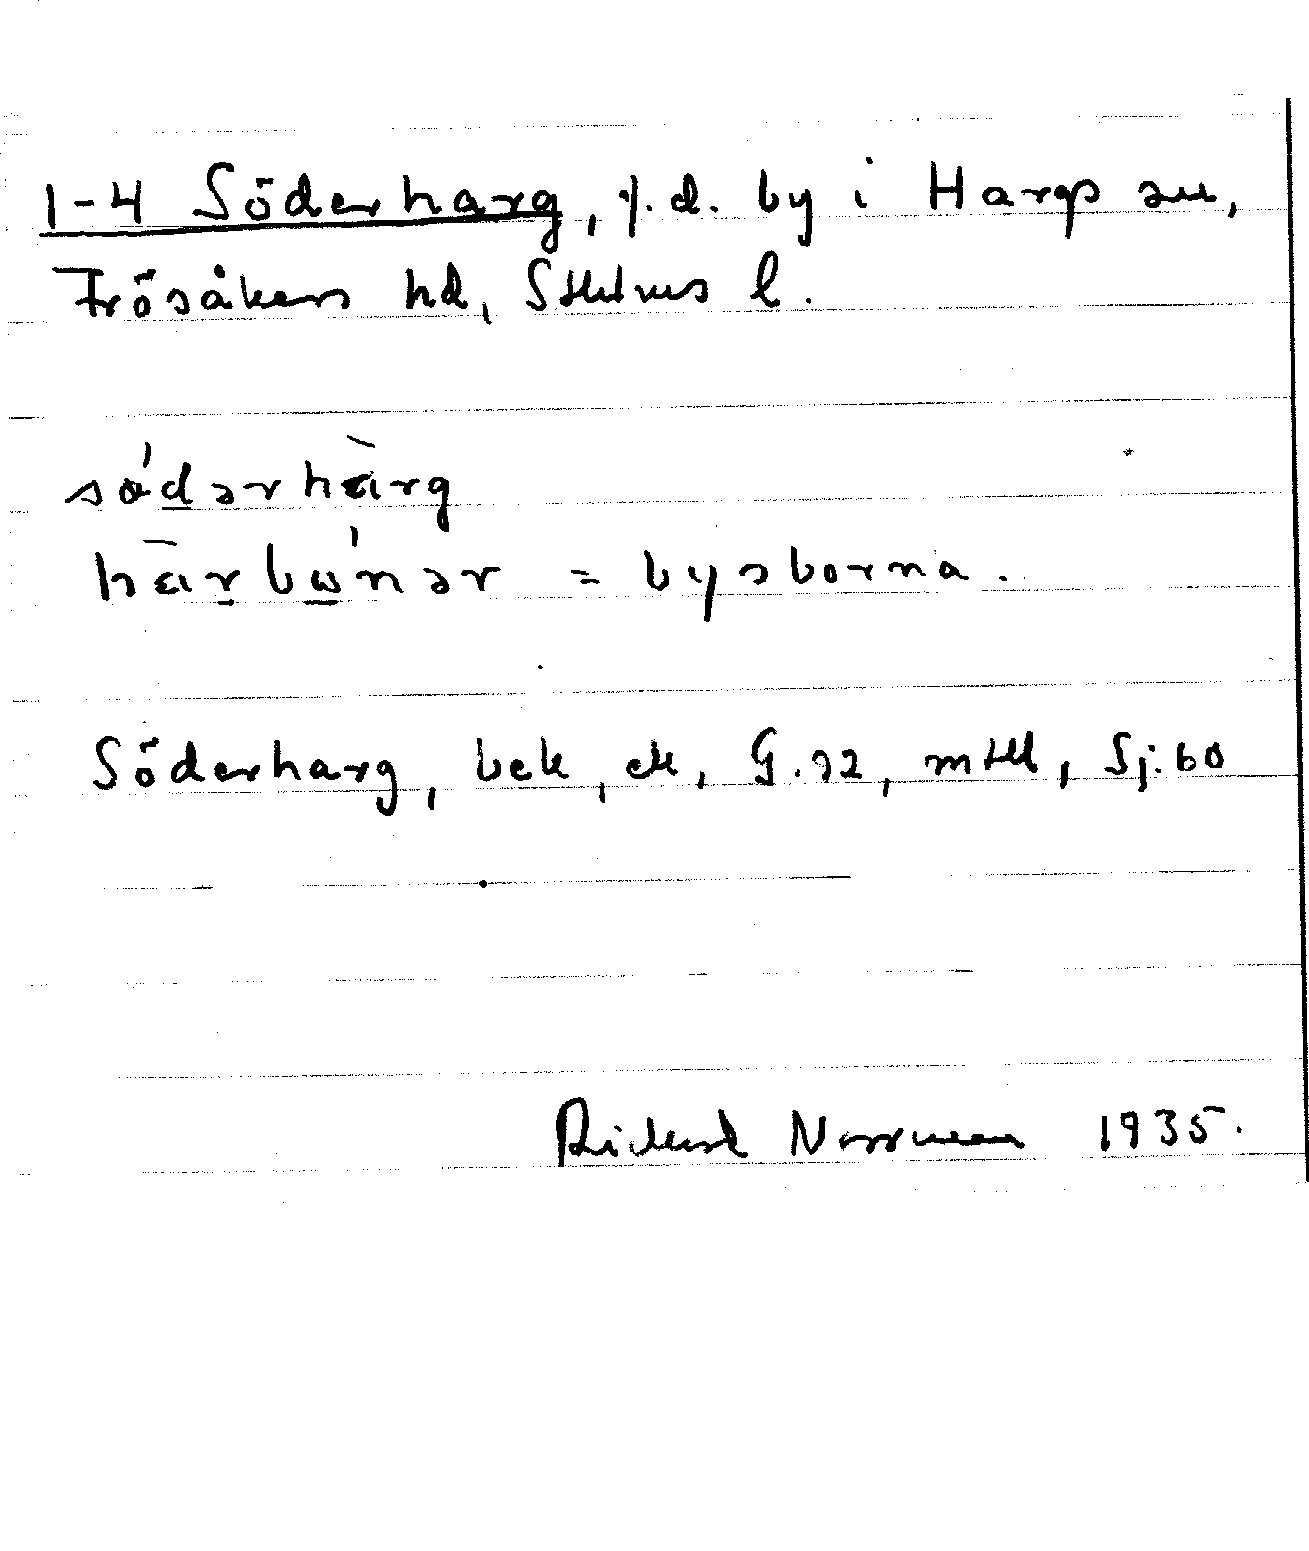 1-4 Söderharg, f.d. by i Hargs sn,
Frösåkers hd, Sthlms l.
sǿdərhàrg
harbónər = bysborna.
Söderharg, bek, ek, G.92, mtbl, Sj:60
Richard Norrman 1935.